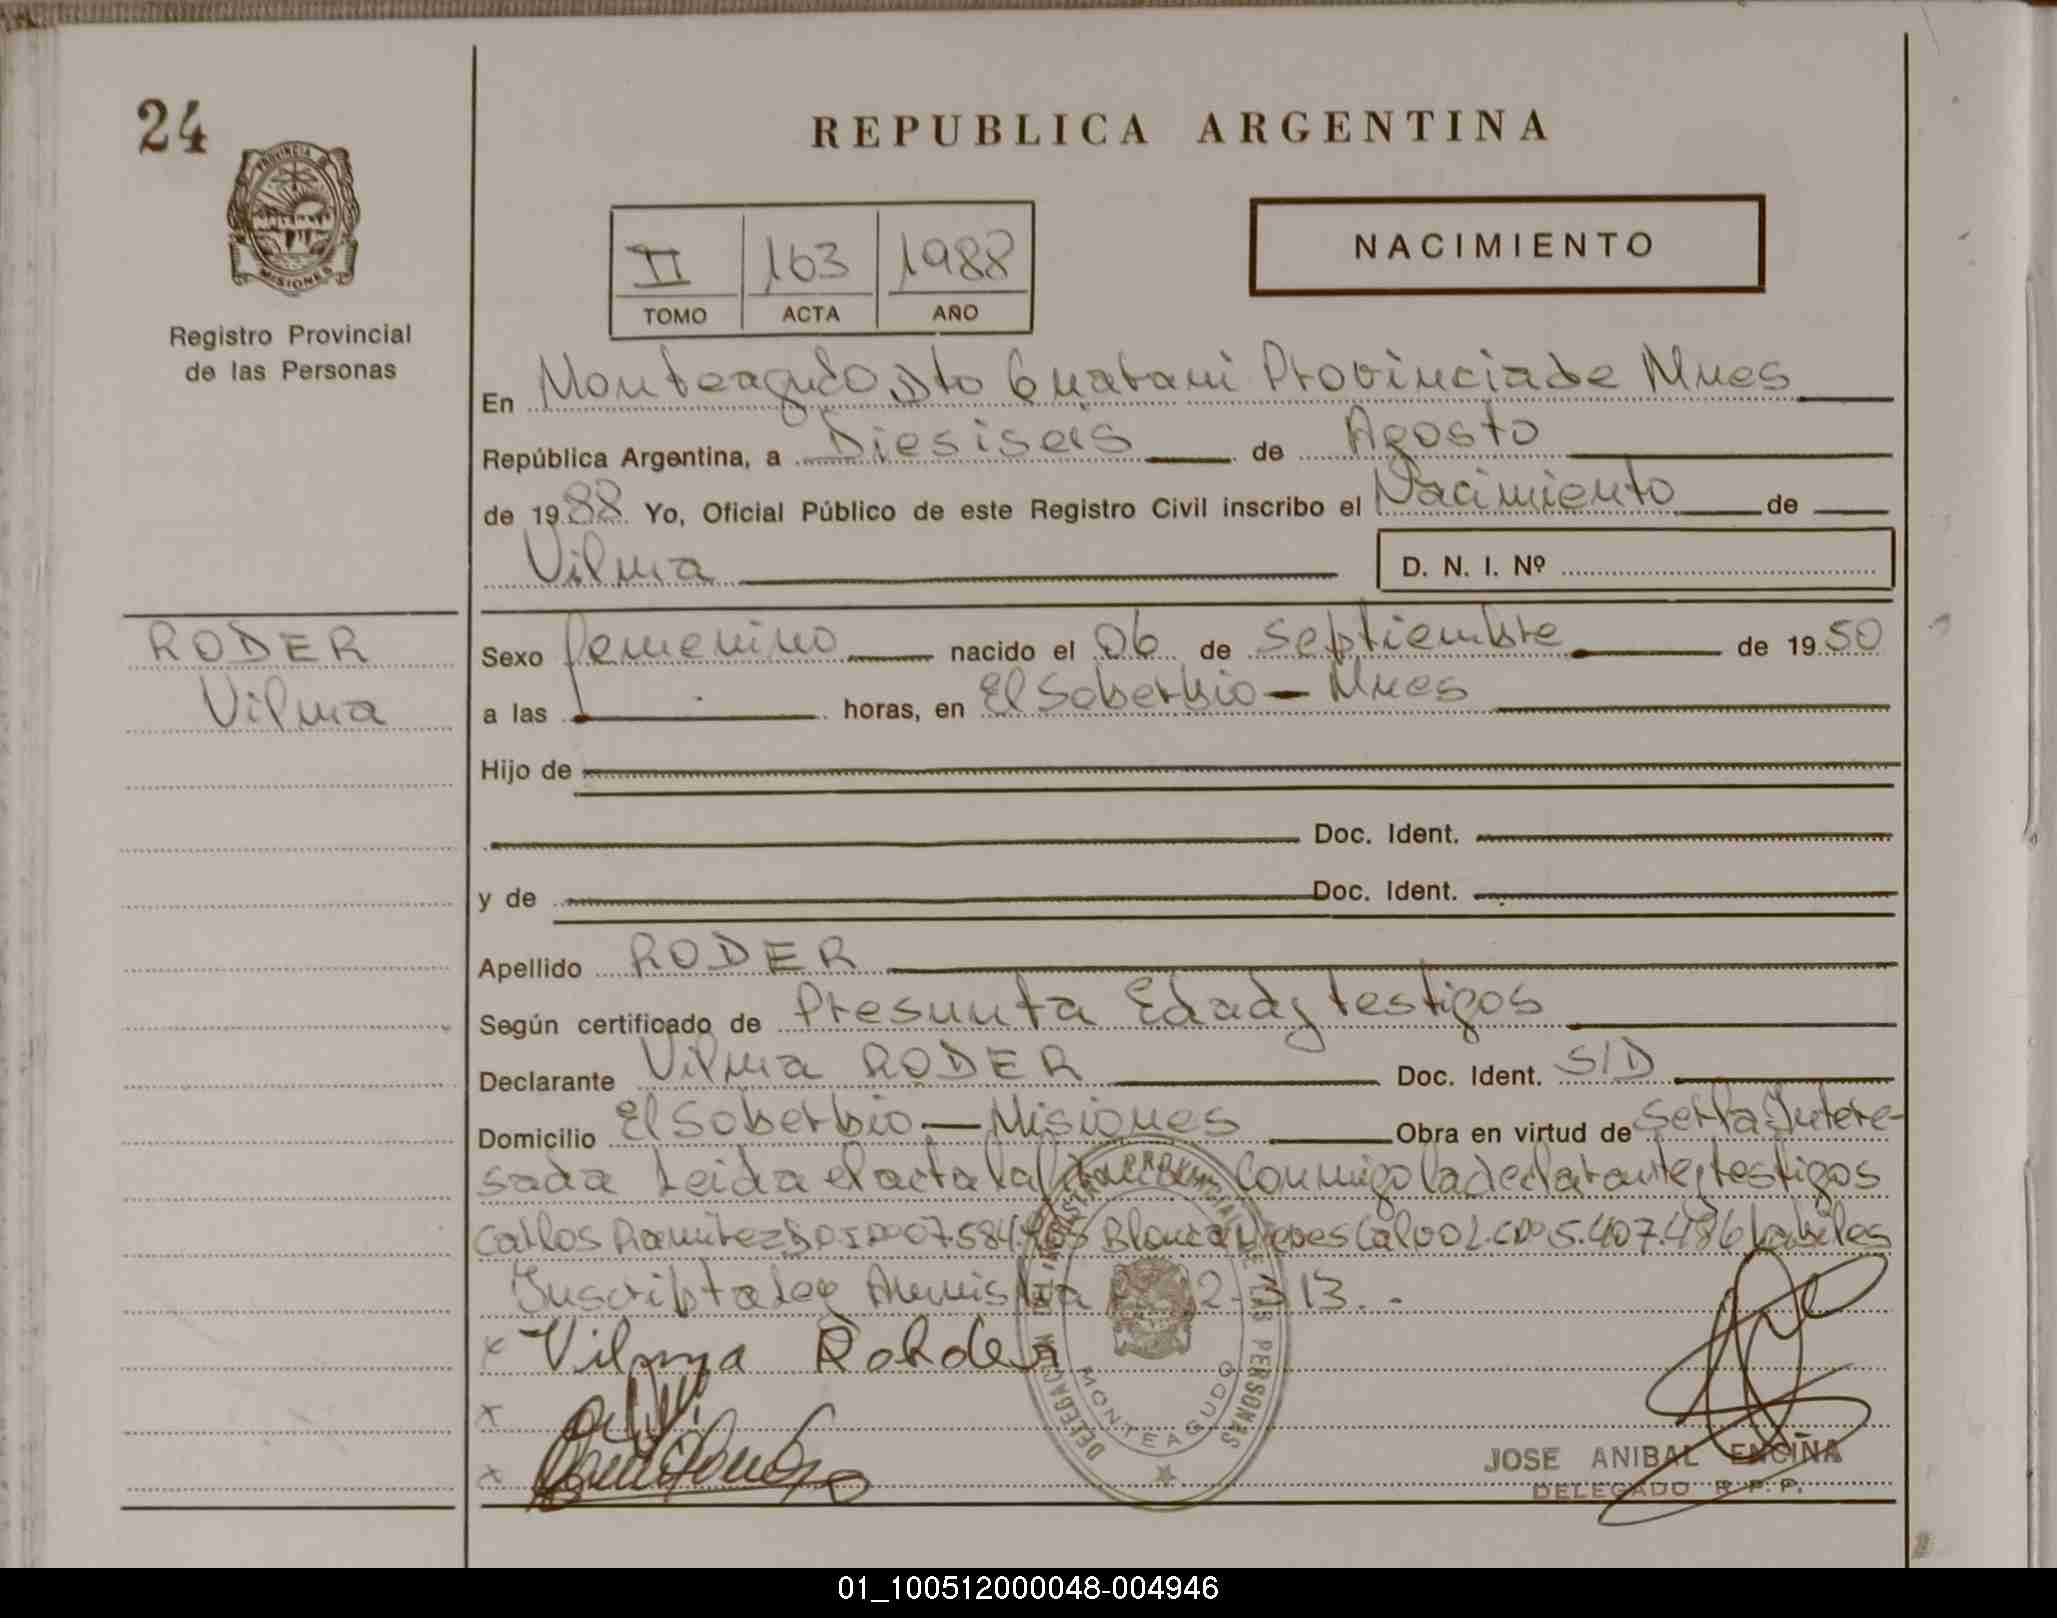 24
PROVINCIA DE
MISIONES
Registro Provincial
de las Personas
REPUBLICA ARGENTINA
II 163 1988
TOMO ACTA AÑO
NACIMIENTO
En Monteagudo Dto Guarani Provincia de Mnes
República Argentina, a Diesiseis de Agosto
de 1988 Yo, Oficial Público de este Registro Civil inscribo el Nacimiento de
Vilma D. N. I. Nº
RODER
Vilma
Sexo femenino nacido el 06 de Septiembre de 1950
a las horas, en El Soberbio - Mnes
Hijo de
Doc. Ident.
y de Doc. Ident.
Apellido RODER
Según certificado de Presunta Edad y testigos
Declarante Vilma RODER Doc. Ident. S/D
Domicilio El Soberbio - Misiones Obra en virtud de Ser la Intere-
sada Leida el acta la conmigo la declarante y testigos
Carlos Ramirez 07.584. Blanca 5.407.486 habiles
Inscripta Ley Amnistia 13..
x Vilma Rohder
x
x
MONTEAGUDO
JOSE ANIBAL ENCIÑA
DELEGADO R.P.P.
01_100512000048-004946